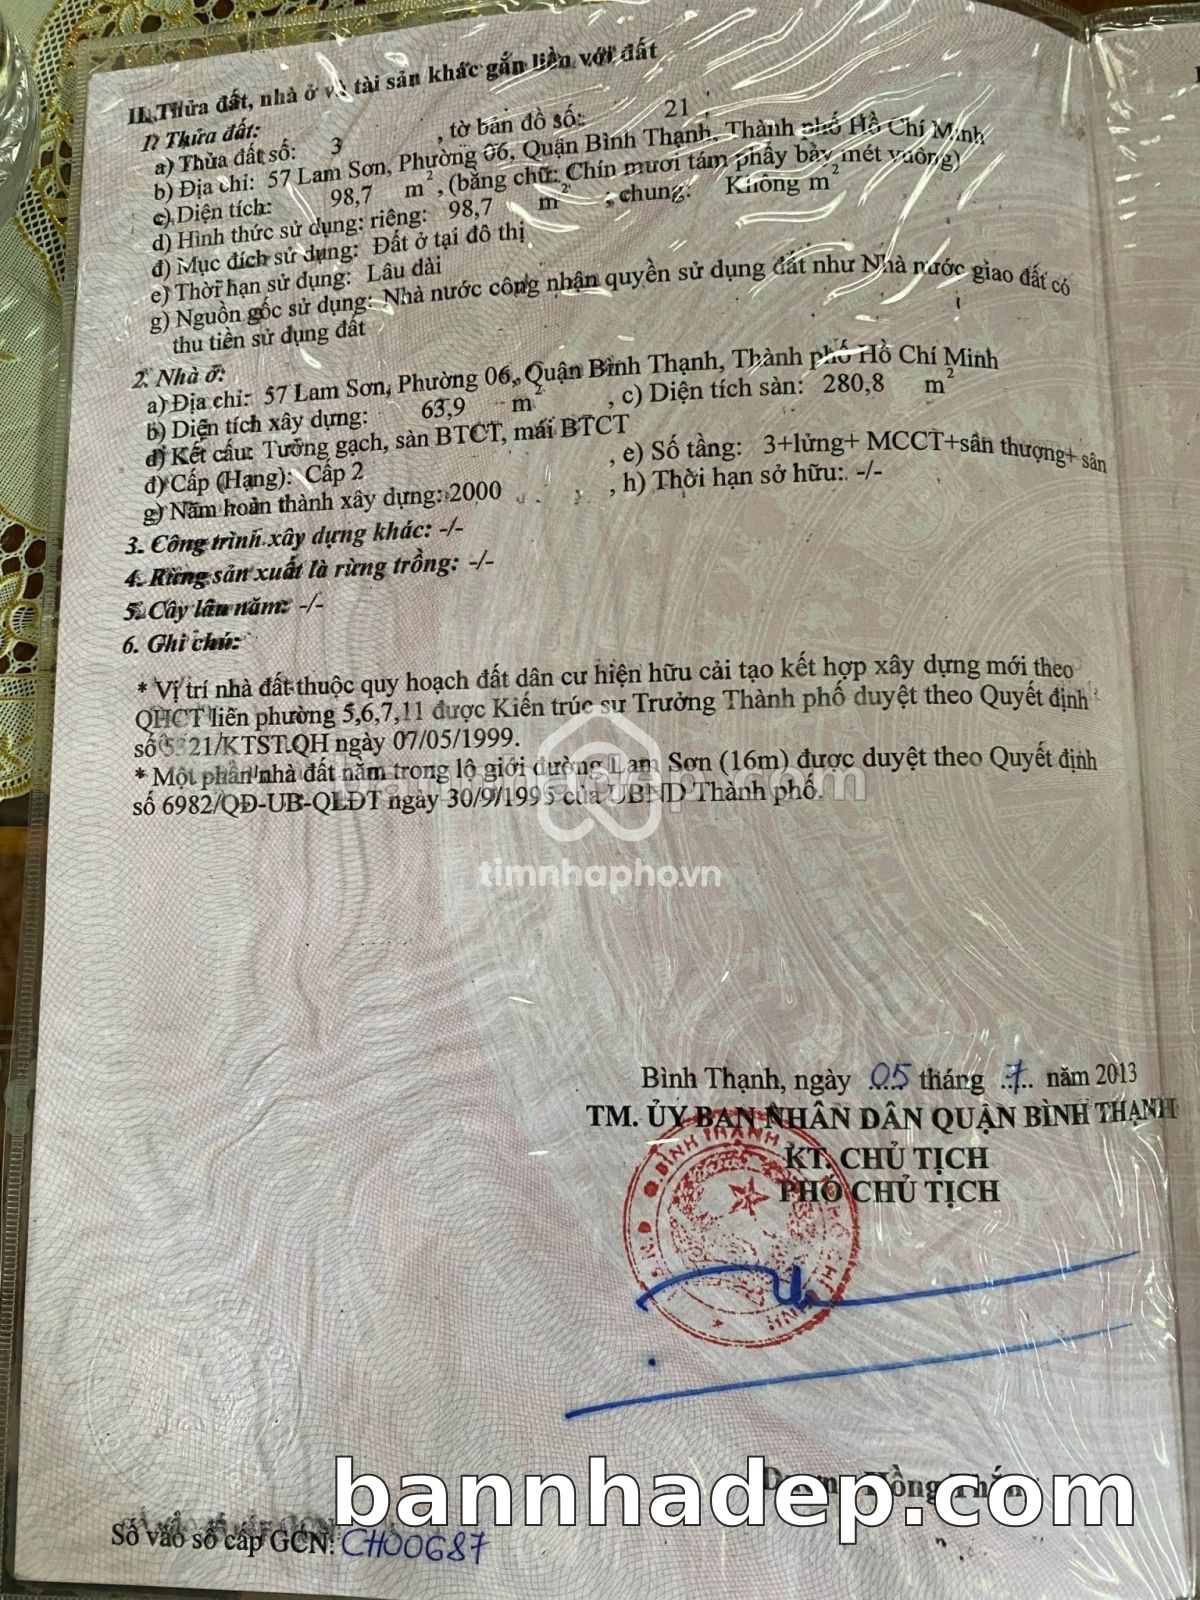 II. Thửa đất, nhà ở và tài sản khác gắn liền với đất
1. Thửa đất:
a) Thửa đất số: 3 , tờ bản đồ số: 21
b) Địa chỉ: 57 Lam Sơn, Phường 06, Quận Bình Thạnh, Thành phố Hồ Chí Minh
c) Diện tích: 98,7 m², (bằng chữ: Chín mươi tám phẩy bảy mét vuông)
d) Hình thức sử dụng: riêng: 98,7 m² , chung: Không m²
đ) Mục đích sử dụng: Đất ở tại đô thị
e) Thời hạn sử dụng: Lâu dài
g) Nguồn gốc sử dụng: Nhà nước công nhận quyền sử dụng đất như Nhà nước giao đất có
thu tiền sử dụng đất
2. Nhà ở:
a) Địa chỉ: 57 Lam Sơn, Phường 06, Quận Bình Thạnh, Thành phố Hồ Chí Minh
b) Diện tích xây dựng: 63,9 m² , c) Diện tích sàn: 280,8 m²
d) Kết cấu: Tường gạch, sàn BTCT, mái BTCT
đ) Cấp (Hạng): Cấp 2 , e) Số tầng: 3+lửng+ MCCT+sân thượng+ sân
g) Năm hoàn thành xây dựng: 2000 , h) Thời hạn sở hữu: -/-
3. Công trình xây dựng khác: -/-
4. Rừng sản xuất là rừng trồng: -/-
5. Cây lâu năm: -/-
6. Ghi chú:
* Vị trí nhà đất thuộc quy hoạch đất dân cư hiện hữu cải tạo kết hợp xây dựng mới theo
QHCT liên phường 5,6,7,11 được Kiến trúc sư Trưởng Thành phố duyệt theo Quyết định
số 5321/KTST.QH ngày 07/05/1999.
* Một phần nhà đất nằm trong lộ giới đường Lam Sơn (16m) được duyệt theo Quyết định
số 6982/QĐ-UB-QLĐT ngày 30/9/1995 của UBND Thành phố.
timnhapho.vn
Bình Thạnh, ngày 05 tháng 7 năm 2013
TM. ỦY BAN NHÂN DÂN QUẬN BÌNH THẠNH
KT. CHỦ TỊCH
PHÓ CHỦ TỊCH
Q. BÌNH THẠNH
Hồng
bannhadep.com
Số vào sổ cấp GCN: CH00687